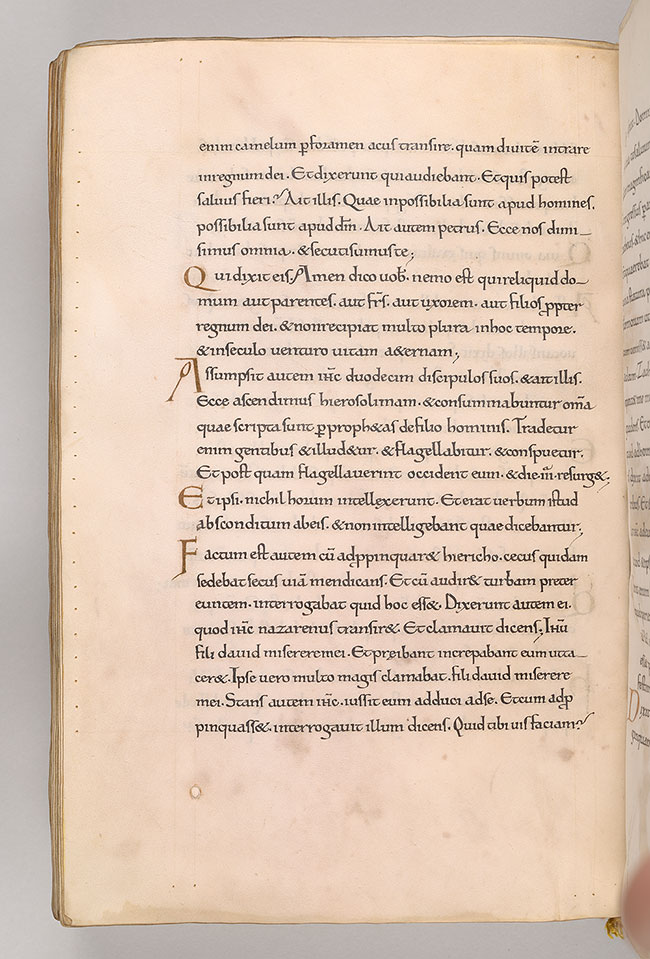 enim camelum pforamen acus transire. quam diuitē intrare
inregnum dei. Etdixerunt quiaudiebant. Etquis potest
saluus fieri? Ait illis. Quae inpossibilia sunt apud homines.
possibilia sunt apud dm̄. Ait autem petrus. Ecce nos dimi_
simus omnia. &secutisumus te;
Qui dixit eis. Amen dico uob̄. nemo est qui reliquid do_
mum aut parentes. aut frs̄. aut uxorem. aut filios ppter
regnum dei. &nonrecipiat multo plura inhoc tempore.
&inseculo uenturo uitam a&ernam;
Assumpsit autem ihc̄ duodecim discipulos suos. &ait illis.
Ecce ascendimus hierosolimam. &consummabuntur om̄a
quae scripta sunt p proph&as defilio hominis. Tradetur
enim gentibus &illud&ur. &flagellabitur. &conspuetur.
Et post quam flagellauerint occident eum. &die .iii. resurg&;
Et ipsi. nichil horum intellexerunt. Eterat uerbum istud
absconditum abeis. &nonintelligebant quae dicebantur;
Factum est autem cū adppinquar& hiericho. cecus quidam
sedebat secus uiā mendicans. Et cū audir& turbam preter
euntem. interrogabat quid hoc ess&. Dixerunt autem ei.
quod ihc̄ nazarenus transir&. Etclamauit dicens; Ihū
fili dauid miserere mei. Et pręibant increpabant eum utta_
cer&. Ipse uero multo magis clamabat. fili dauid miserere
mei. Stans autem ihc̄. iussit eum adduci adse. Etcum adp
pinquass&. interrogauit illum dicens. Quid tibi uis faciam?